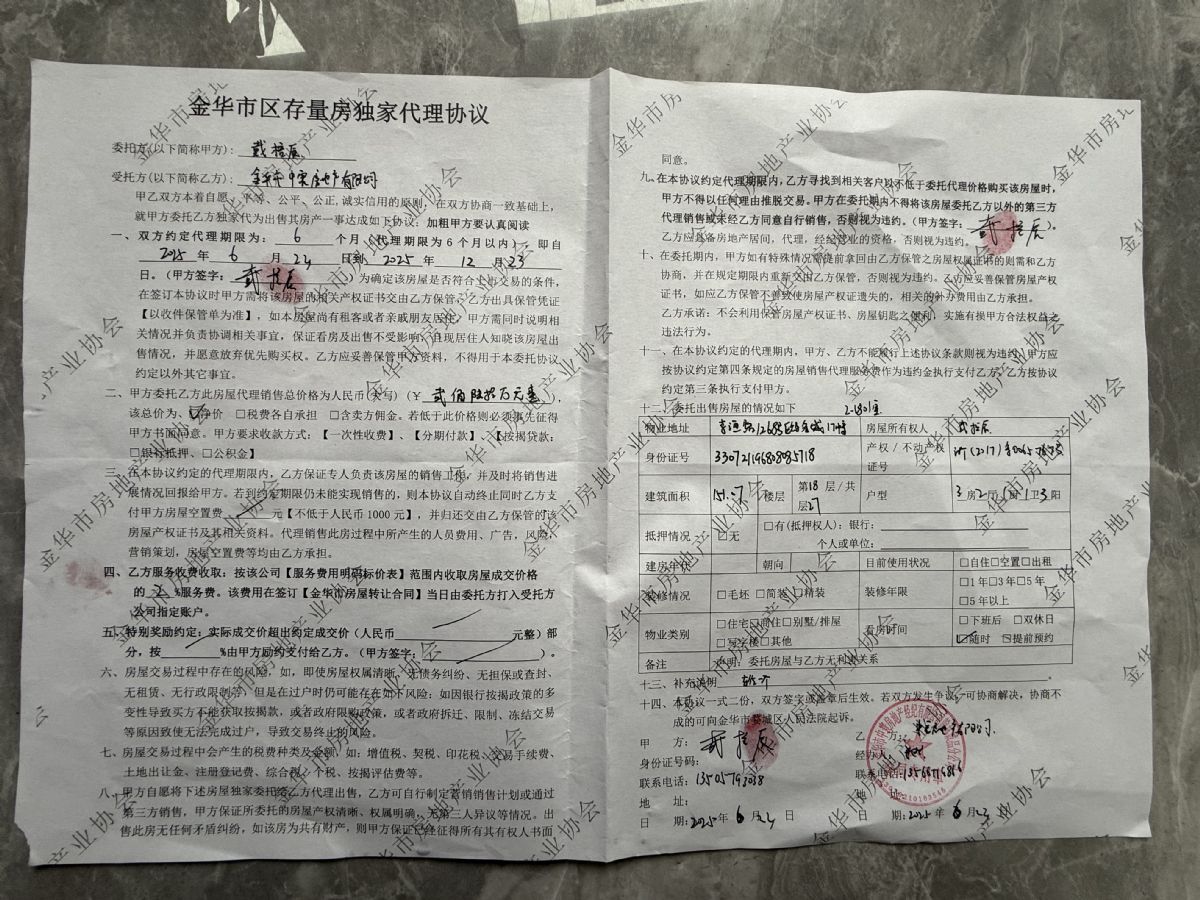 金华市区存量房独家代理协议
委托方(以下简称甲方):
受托方(以下简称乙方):
甲乙双方本着自愿、平等、公平、公正,诚实信用的原则,在双方协商一致基础上,
就甲方委托乙方独家代为出售其房产一事达成如下协议:加粗甲方要认真阅读
一、双方约定代理期限为: 6 个月(代理期限为6个月以内),即自
2025 年 6 月 24 日到 2025 年 12 月 23
日。(甲方签字: )为确定该房屋是否符合上市交易的条件,
在签订本协议时甲方需将该房屋的相关产权证书交由乙方保管,乙方出具保管凭证
【以收件保管单为准】,如本房屋尚有租客或者亲戚朋友居住,甲方需同时说明相
关情况并负责协调相关事宜,保证看房及出售不受影响,且现居住人知晓该房屋出
售情况,并愿意放弃优先购买权。乙方应妥善保管甲方资料,不得用于本委托协议
约定以外其它事宜。
二、甲方委托乙方此房屋代理销售总价格为人民币(大写)(¥ ),
该总价为、☑净价 □税费各自承担 □含卖方佣金。若低于此价格则必须事先征得
甲方书面同意。甲方要求收款方式:【一次性收费】、【分期付款】、【按揭贷款:
□银行抵押、□公积金】
三、在本协议约定的代理期限内,乙方保证专人负责该房屋的销售工作,并及时将销售进
展情况回报给甲方。若到约定期限仍未能实现销售的,则本协议自动终止同时乙方支
付甲方房屋空置费 元【不低于人民币1000元】,并归还交由乙方保管的该
房屋产权证书及其相关资料。代理销售此房过程中所产生的人员费用、广告,风险,
营销策划,房屋空置费等均由乙方承担。
四、乙方服务收费收取:按该公司【服务费用明码标价表】范围内收取房屋成交价格
的 %服务费。该费用在签订【金华市房屋转让合同】当日由委托方打入受托方
公司指定账户。
五、特别奖励约定:实际成交价超出约定成交价(人民币 元整)部
分,按 %由甲方励约支付给乙方。(甲方签字: )。
六、房屋交易过程中存在的风险,如,即使房屋权属清晰、无债务纠纷、无担保或查封、
无租赁、无行政限制等,但是在过户时仍可能存在如下风险:如因银行按揭政策的多
变性导致买方不能获取按揭款,或者政府限购政策,或者政府拆迁、限制、冻结交易
等原因致使无法完成过户,导致交易终止的风险。
七、房屋交易过程中会产生的税费种类及金额,如:增值税、契税、印花税、交易手续费、
土地出让金、注册登记费、综合税、个税、按揭评估费等。
八、甲方自愿将下述房屋独家委托给乙方代理出售,乙方可自行制定营销销售计划或通过
第三方销售,甲方保证所委托的房屋产权清晰、权属明确,无第三人异议等情况。出
售此房无任何矛盾纠纷,如该房为共有财产,则甲方保证已经征得所有其有权人书面
同意。
九、在本协议约定代理期限内,乙方寻找到相关客户以不低于委托代理价格购买该房屋时,
甲方不得以任何理由推脱交易。甲方在委托期内不得将该房屋委托乙方以外的第三方
代理销售或未经乙方同意自行销售,否则视为违约。(甲方签字: )。
乙方应具备房地产居间,代理,经纪营业的资格,否则视为违约。
十、在委托期内,甲方如有特殊情况需提前拿回由乙方保管之房屋权属证书的则需和乙方
协商。并在规定期限内重新交由乙方保管,否则视为违约。乙方应妥善保管房屋产权
证书,如应乙方保管不善致使房屋产权证遗失的,相关的补办费用由乙方承担。
乙方承诺:不会利用保管房屋产权证书、房屋钥匙之便利,实施有损甲方合法权益之
违法行为。
十一、在本协议约定的代理期内,甲方、乙方不能履行上述协议条款则视为违约,甲方应
按协议约定第四条规定的房屋销售代理服务费作为违约金执行支付乙方,乙方按协议
约定第三条执行支付甲方。
十二、委托出售房屋的情况如下
物业地址 房屋所有权人
身份证号 330721196808085718 产权/不动产权证号
建筑面积 151.07 楼层 第18层/共27层 户型 3房2厅1厨1卫3阳
抵押情况 □有(抵押权人):银行:
☑无 个人或单位:
建房年代 朝向 目前使用状况 □自住□空置□出租
装修情况 □毛坯 □简装 □精装 装修年限 □1年□3年□5年
□5年以上
物业类别 □住宅□商住□别墅/排屋 看房时间 □下班后 □双休日
□写字楼□其他 ☑随时 ☑提前预约
备注 声明:委托房屋与乙方无利害关系
十三、补充说明
十四、本协议一式二份,双方签字或盖章后生效。若双方发生争议,可协商解决,协商不
成的可向金华市婺城区人民法院起诉。
甲 方: 乙 方:
身份证号码: 经办人:
联系电话: 联系电话:
地 址: 地 址:
日 期:2025年 6月24日 日 期:2025年 6月23
金华市房地产业协会